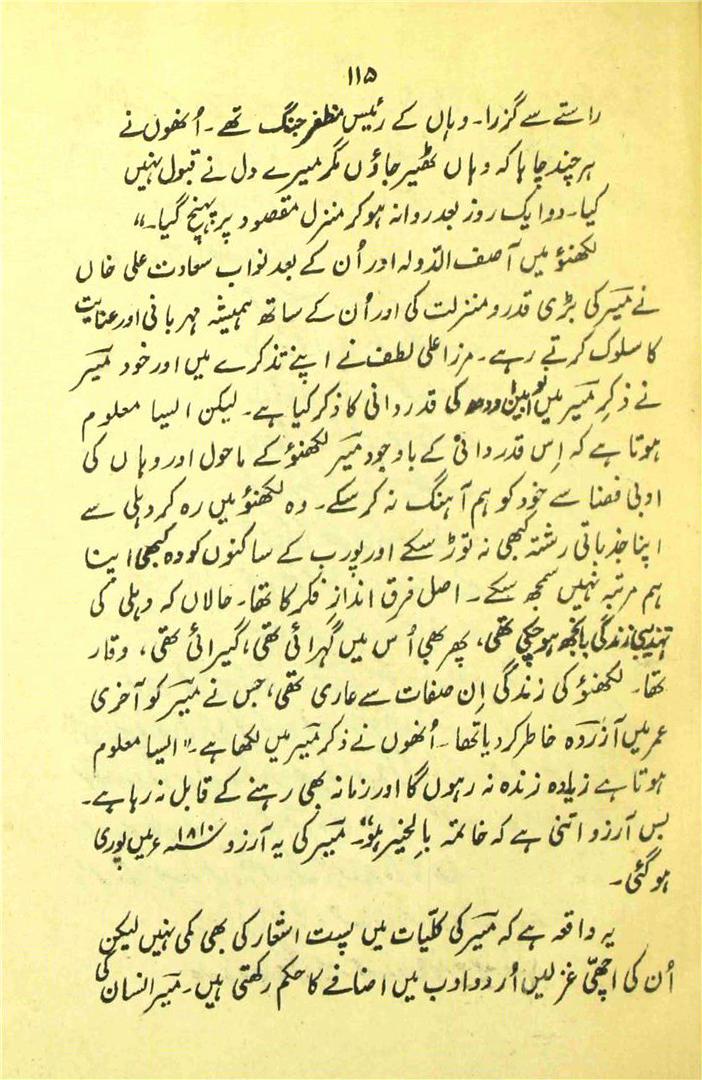 ۱۱۵
راستے سے گزرا۔ وہاں کے رئیس مظفر جنگ تھے۔ اُنھوں نے
ہر چند چاہا کہ وہاں ٹھیر جاؤں مگر میرے دل نے قبول نہیں
کیا۔ دو ایک روز بعد روانہ ہو کر منزلِ مقصود پر پہنچ گیا۔"
لکھنؤ میں آصف الدّولہ اور اُن کے بعد نواب سعادت علی خاں
نے میرؔ کی بڑی قدر و منزلت کی اور اُن کے ساتھ ہمیشہ مہربانی اور عنایت
کا سلوک کرتے رہے۔ مرزا علی لطف نے اپنے تذکرے میں اور خود میرؔ
نے ذکرِ میرؔ میں نوابینِ اودھ کی قدردانی کا ذکر کیا ہے۔ لیکن ایسا معلوم
ہوتا ہے کہ اِس قدردانی کے باوجود میرؔ لکھنؤ کے ماحول اور وہاں کی
ادبی فضا سے خود کو ہم آہنگ نہ کر سکے۔ وہ لکھنؤ میں رہ کر دہلی سے
اپنا جذباتی رشتہ کبھی نہ توڑ سکے اور پورب کے ساکنوں کو وہ کبھی اپنا
ہم مرتبہ نہیں سمجھ سکے۔ اصل فرق اندازِ فکر کا تھا۔ حالاں کہ دہلی کی
تہذیبی زندگی بانجھ ہو چکی تھی، پھر بھی اُس میں گہرائی تھی، گیرائی تھی، وقار
تھا۔ لکھنؤ کی زندگی اِن صفات سے عاری تھی، جس نے میرؔ کو آخری
عمر میں آزردہ خاطر کر دیا تھا۔ اُنھوں نے ذکرِ میرؔ میں لکھا ہے۔ "ایسا معلوم
ہوتا ہے زیادہ زندہ نہ رہوں گا اور زمانہ بھی رہنے کے قابل نہ رہا ہے۔
بس آرزو اتنی ہے کہ خاتمہ بالخیر ہو"۔ میرؔ کی یہ آرزو ۱۸۱۰ء میں پوری
ہو گئی۔
یہ واقعہ ہے کہ میرؔ کی کلّیات میں پست اشعار کی بھی کمی نہیں لیکن
اُن کی اچھّی غزلیں اُردو ادب میں اضافے کا حکم رکھتی ہیں۔ میرؔ انسان کی